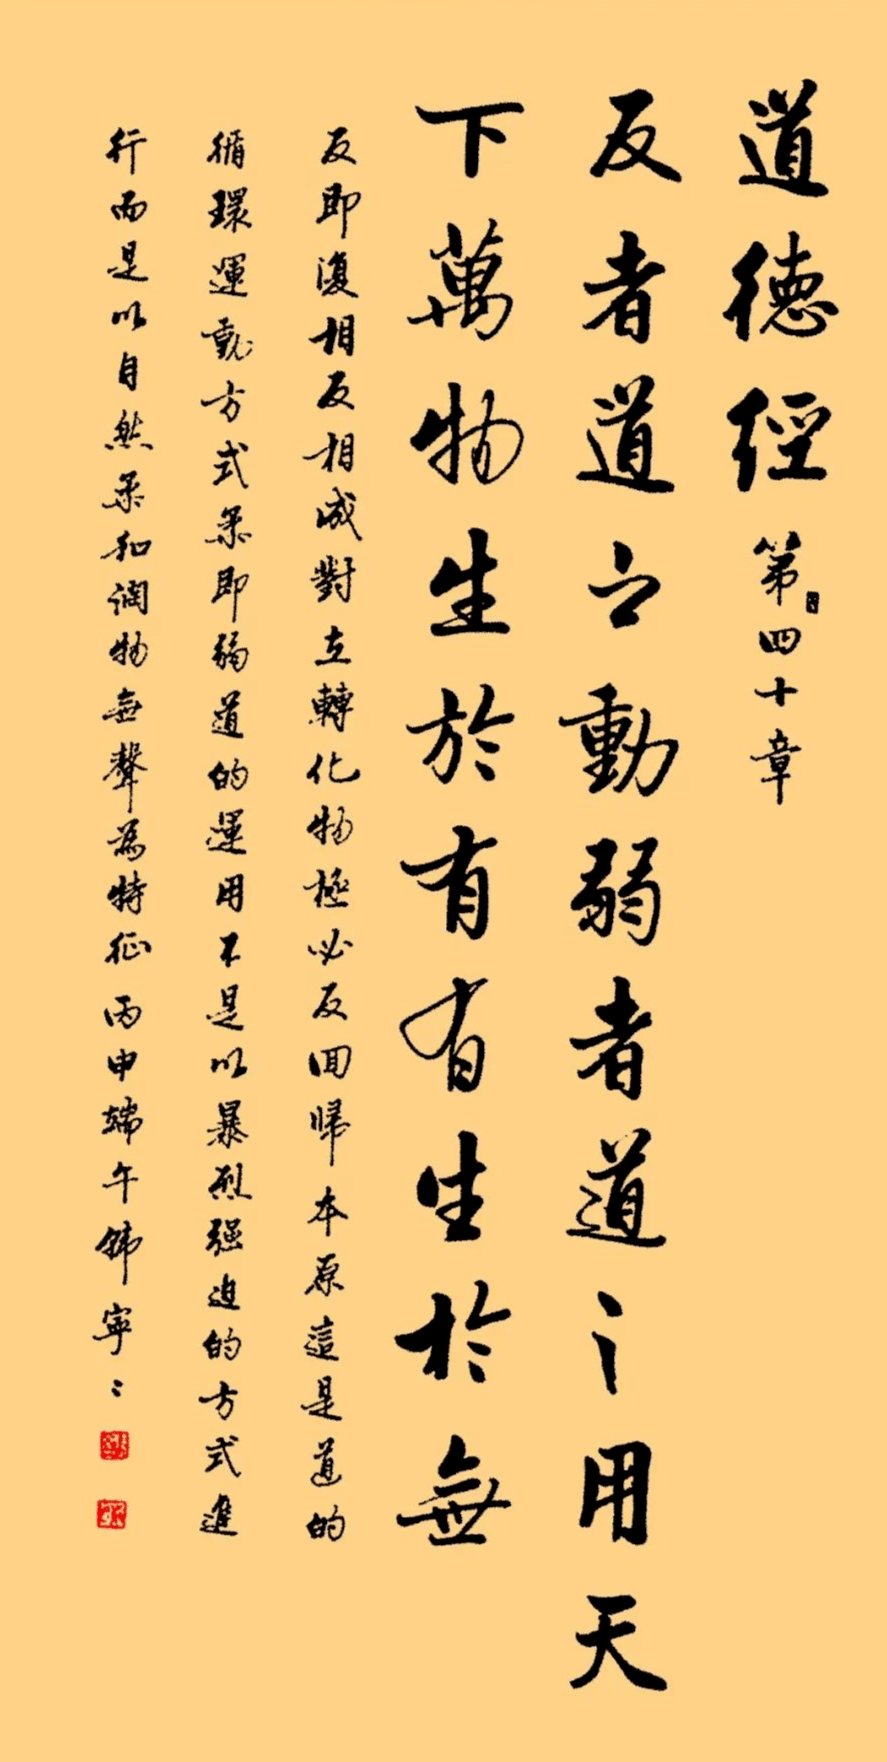 道德經 第四十章
反者道之動弱者道之用天
下萬物生於有有生於無
反即復相反相成對立轉化物極必反回歸本原這是道的
循環運動方式柔即弱道的運用不是以暴烈强迫的方式進
行而是以自然柔和潤物無聲為特征 丙申端午 寧